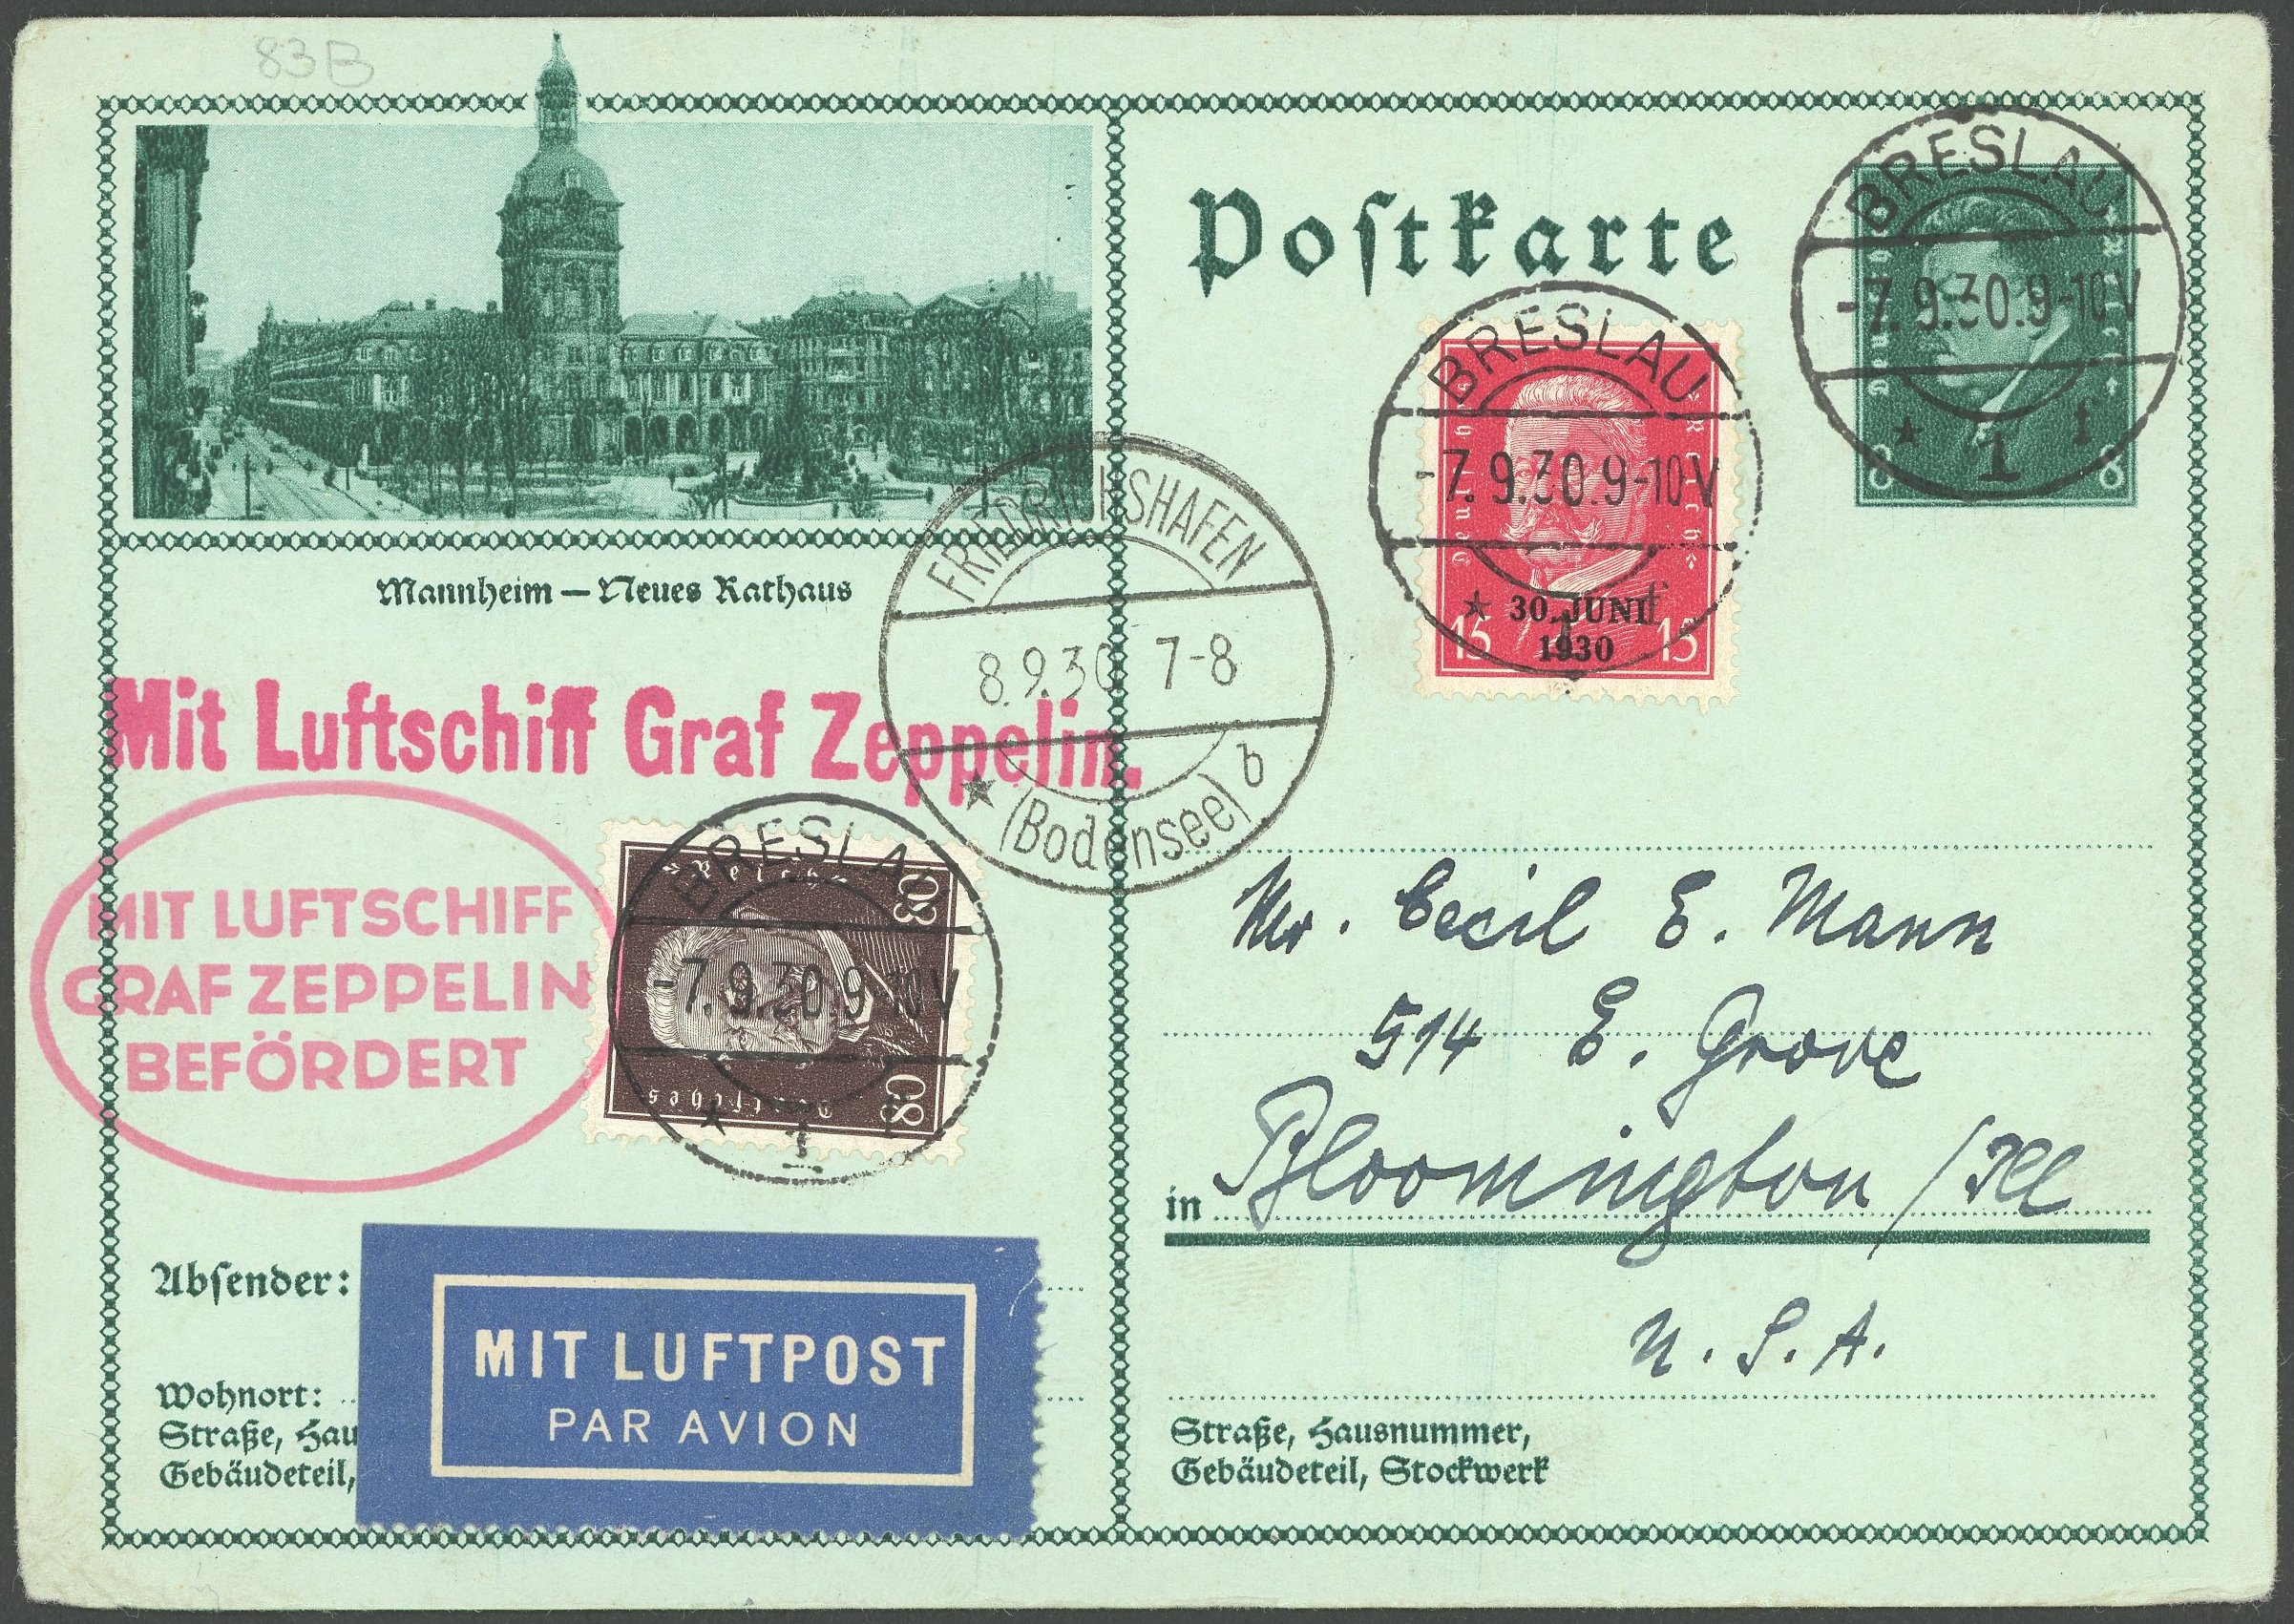 83B
Postkarte
BRESLAU
-7.9.30.9-10V
* 1 f
Deutsches Reich
8 8
BRESLAU
-7.9.30.9-10V
Deutsches Reich
* 30. JUNI
1930
15 15
Mannheim – Neues Rathaus
FRIEDRICHSHAFEN
8.9.30 7-8
* (Bodensee) b
Mit Luftschiff Graf Zeppelin.
MIT LUFTSCHIFF
GRAF ZEPPELIN
BEFÖRDERT
BRESLAU
-7.9.30.9-10V
* 1 f
Deutsches Reich
80 80
Mr. Cecil E. Mann
514 E. Grove
in Bloomington / Ill
U. S. A.
Absender:
Wohnort:
Straße, Hau
Gebäudeteil,
MIT LUFTPOST
PAR AVION
Straße, Hausnummer,
Gebäudeteil, Stockwerk